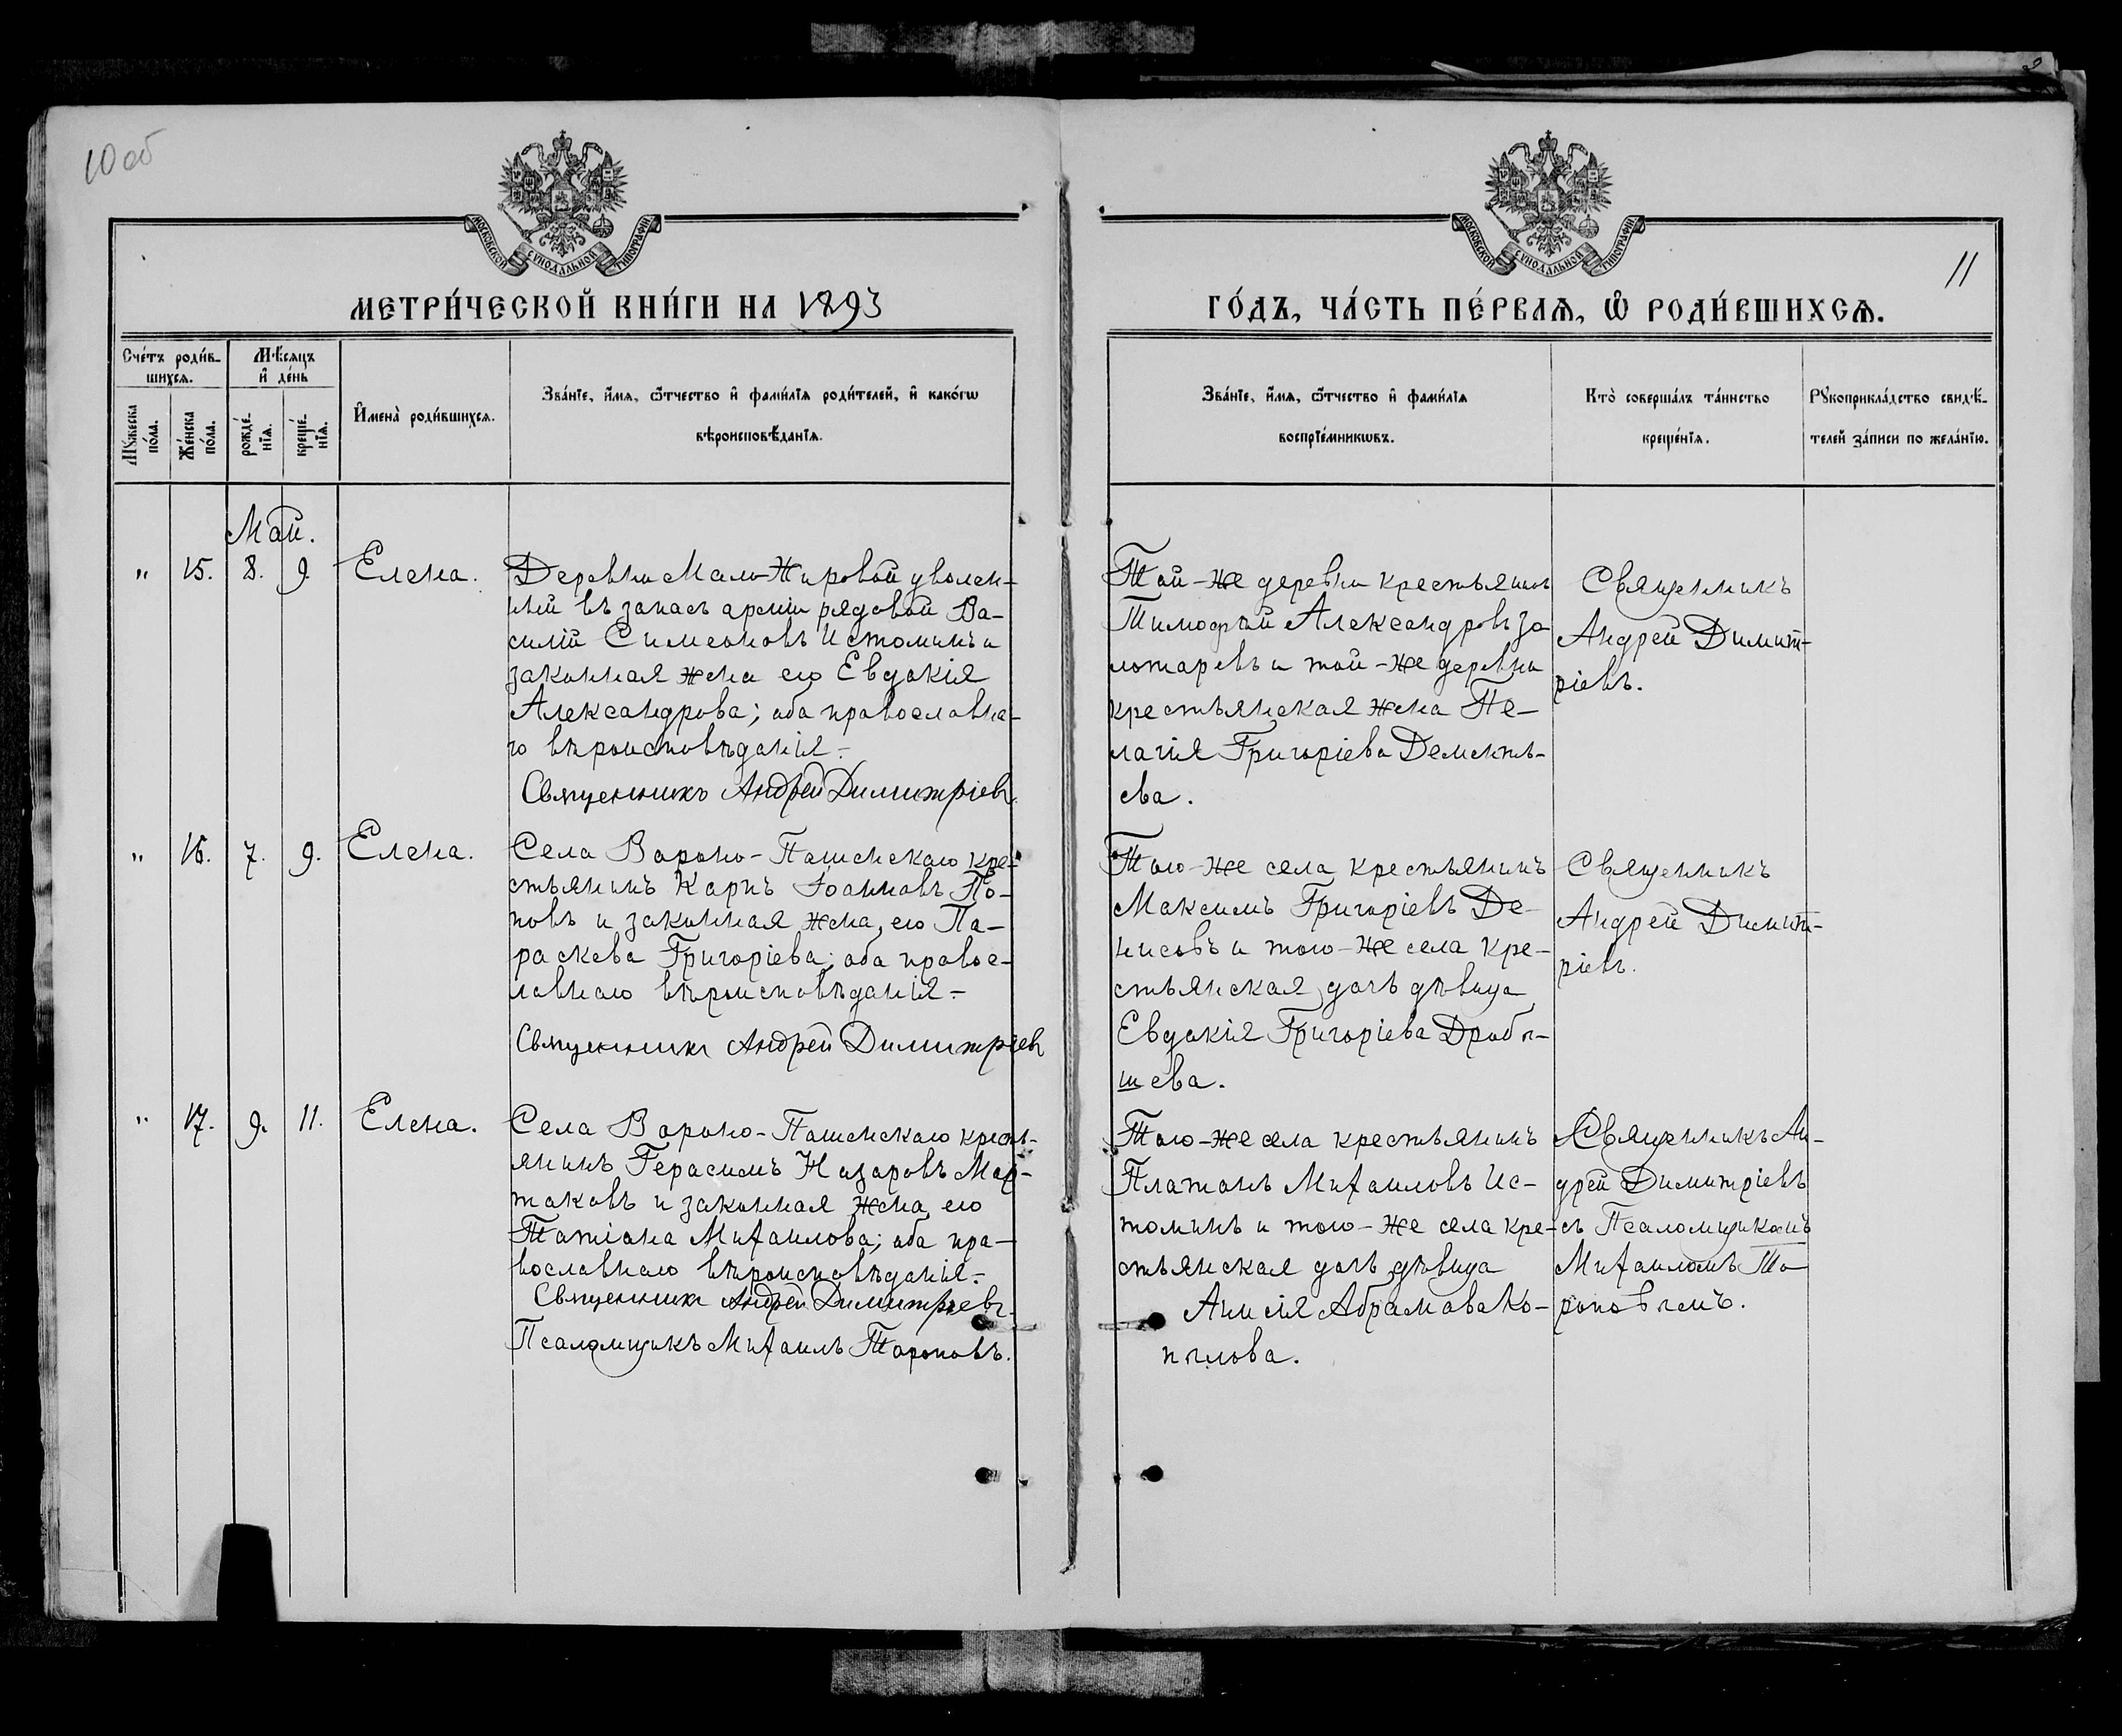 10 об
МОСКОВСКОЙ СѴНОДАЛЬНОЙ ТИПОГРАФІИ
МЕТРИ́ЧЕСКОЙ КНИ́ГИ НА 1893
Сче́тъ роди́в-
шихся.
Мѣ́сяцъ
и҆ де́нь
Мꙋ́жеска
по́ла.
Же́нска
по́ла.
рожде́-
нїѧ.
креще́-
нїѧ.
И҆мена̀ роди́вшихсѧ.
Зва́нїе, и҆́мѧ, ѻ҆́тчество и҆ фами́лїѧ роди́телей, и҆ како́гѡ
вѣроисповѣ́данїѧ.
Май.
" 15. 8. 9. Елена.
Деревни Мало-Жировой уволен-
ный въ запасъ арміи рядовой Ва-
силій Симеоновъ Истоминъ и
законная жена его Евдокія
Александрова; оба православна-
го вѣроисповѣданія.-
Священникъ Андрей Димитріевъ.
" 16. 7. 9. Елена.
Села Вороно-Пашенскаго кре-
стьянинъ Карпъ Іоанновъ По-
повъ и законная жена его Па-
раскева Григоріева; оба правос-
лавнаго вѣроисповѣданія.-
Священникъ Андрей Димитріевъ
" 17. 9. 11. Елена.
Села Вороно-Пашенскаго кресть-
янинъ Герасимъ Назаровъ Мор-
таковъ и законная жена его
Татіана Михаилова; оба пра-
вославнаго вѣроисповѣданія.-
Священникъ Андрей Димитріевъ.
Псаломщикъ Михаилъ Тороповъ.
МОСКОВСКОЙ СѴНОДАЛЬНОЙ ТИПОГРАФІИ
11
ГО́ДЪ, ЧА́СТЬ ПЕ́РВАѦ, Ѡ҆ РОДИ́ВШИХСѦ.
Зва́нїе, и҆́мѧ, ѻ҆́тчество и҆ фами́лїѧ
воспрїе́мникѡвъ.
Кто̀ соверша́лъ та́инство
креще́нїѧ.
Рꙋкоприкла́дство свидѣ́-
телей за́писи по жела́нїю.
Той-же деревни крестьянинъ
Тимофей Александровъ Зо
лотаревъ и той-же деревни
крестьянская жена Пе-
лагія Григоріева Дементь-
ева.
Священникъ
Андрей Димит-
ріевъ.
Того-же села крестьянинъ
Максимъ Григоріевъ Де-
нисовъ и того-же села кре-
стьянская дочь дѣвица
Евдокія Григоріева Дробы-
шева.
Священникъ
Андрей Димит-
ріевъ.
Того-же села крестьянинъ
Платонъ Михаиловъ Ис-
томинъ и того-же села кре-
стьянская дочь дѣвица
Анисія Абрамова Ко-
пылова.
Священникъ Ан-
дрей Димитріевъ
съ Псаломщикомъ
Михаиломъ То
роповымъ.